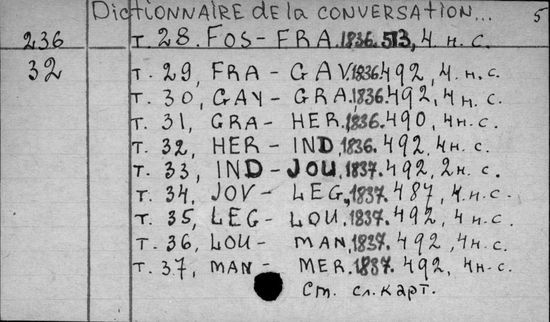 Dictionnaire de la conversation... 5
236 т. 28. FOS - FRA. 1836. 513, 4 н. с.
32 т. 29, FRA - GAV. 1836. 492, 4 н. с.
т. 30, GAY - GRA, 1836. 492, 4 н. с.
т. 31, GRA - HER. 1836. 490, 4 н. с.
т. 32, HER - IND, 1836. 492, 4 н. с.
т. 33, IND - JOU, 1837. 492, 2 н. с.
т. 34, JOV - LEG, 1837. 487, 4 н. с.
т. 35, LEG - LOU. 1837. 492, 4 н. с.
т. 36, LOU - MAN, 1837. 492, 4 н. с.
т. 37, MAN - MER. 1837. 492, 4 н. с.
Ст. сл. карт.